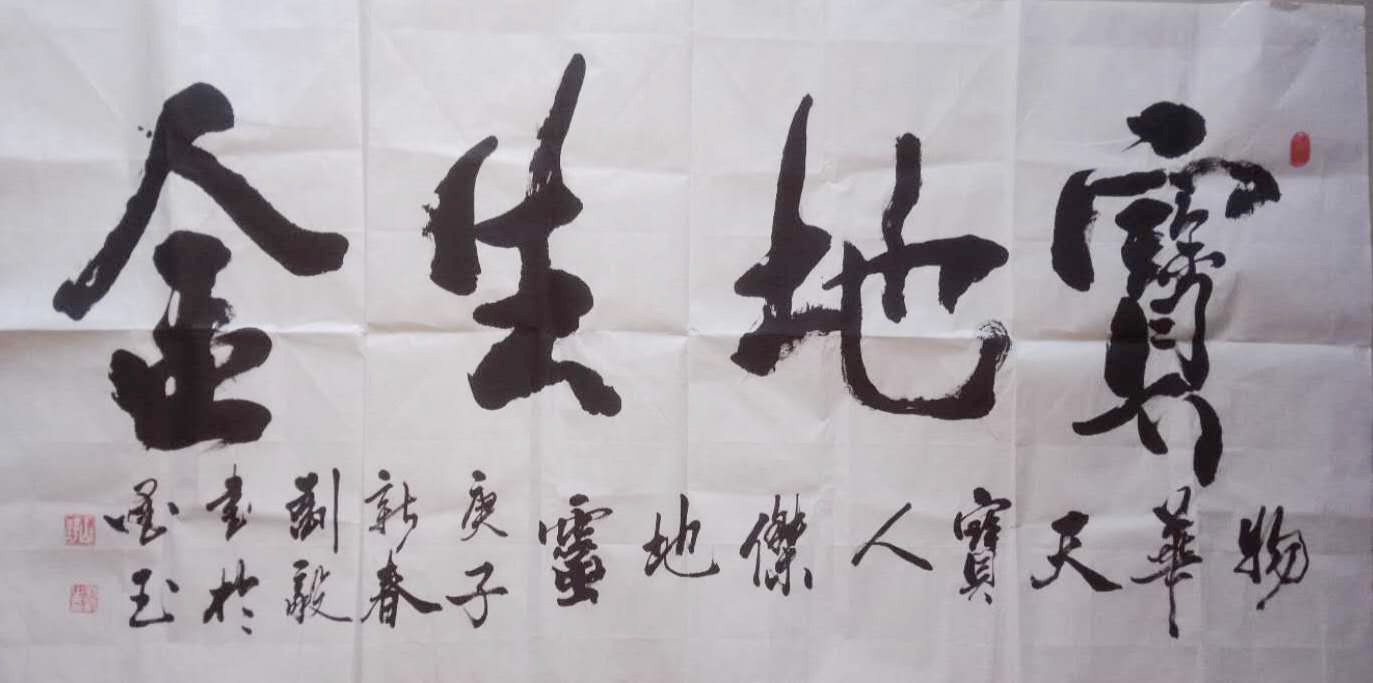 寶地生金
物華天寶人傑地靈
庚子
新春
劉毅
書於
墨玉